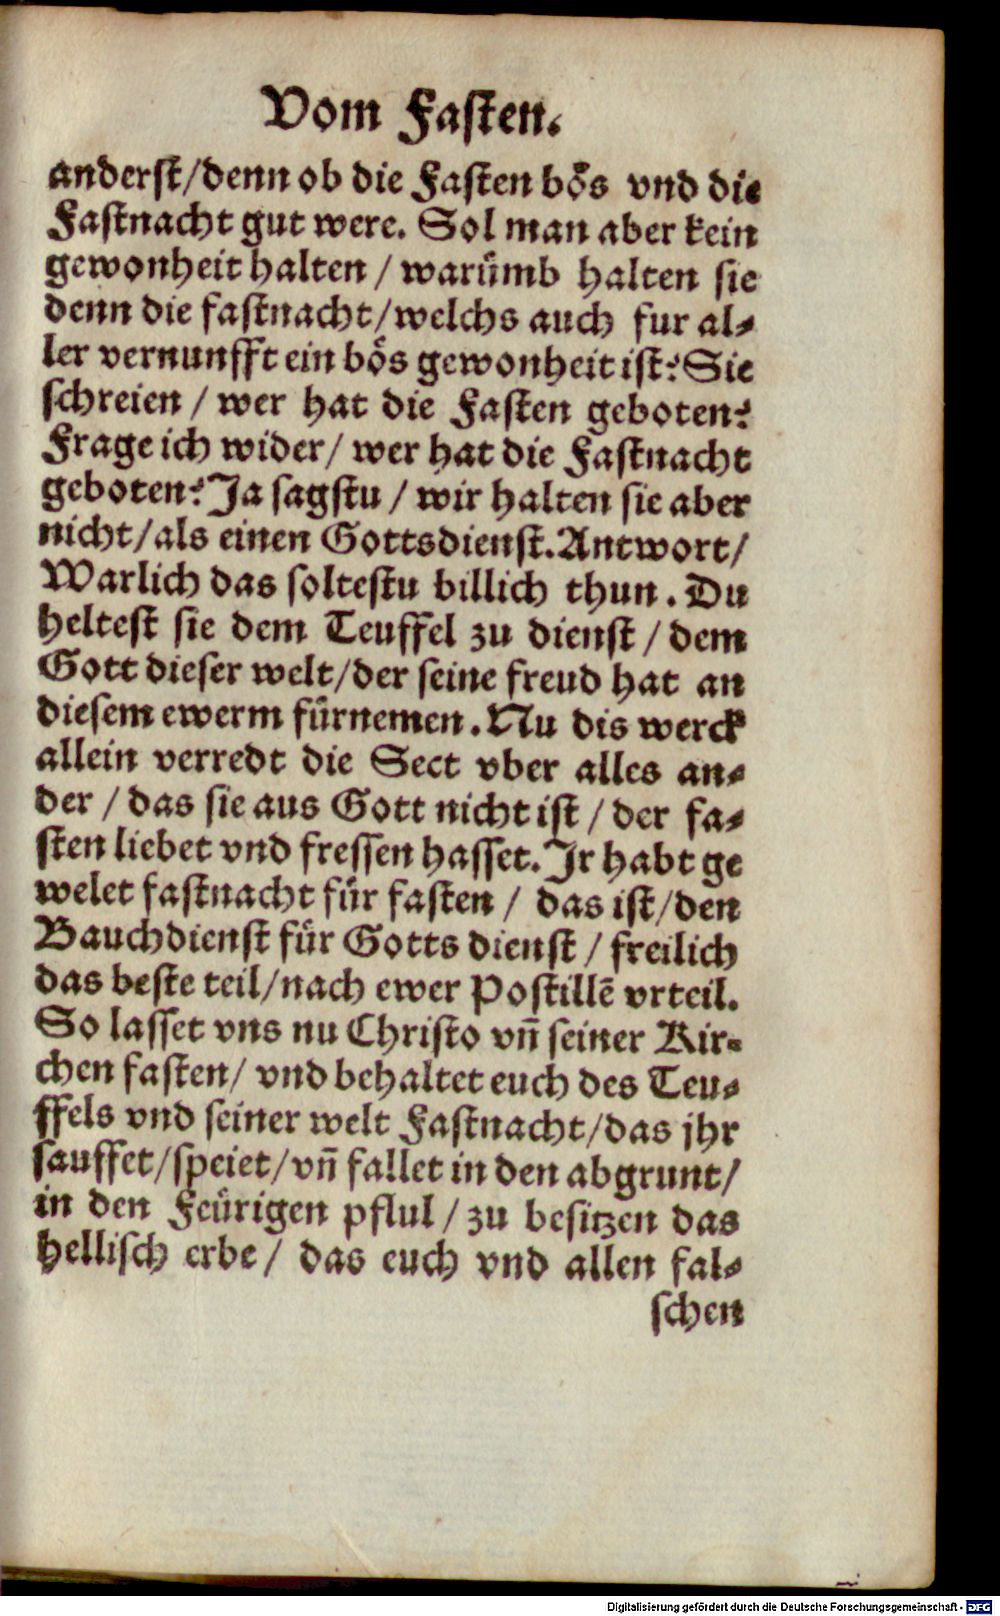 Vom Fasten.
anderst/denn ob die Fasten boͤs vnd die
Fastnacht gut were. Sol man aber kein
gewonheit halten / waruͤmb halten sie
denn die fastnacht/welchs auch fur al⸗
ler vernunfft ein boͤs gewonheit ist? Sie
schreien / wer hat die Fasten geboten?
Frage ich wider/ wer hat die Fastnacht
geboten? Ja sagstu / wir halten sie aber
nicht/als einen Gottsdienst. Antwort/
Warlich das soltestu billich thun. Du
heltest sie dem Teuffel zu dienst / dem
Gott dieser welt/der seine freud hat an
diesem ewerm fuͤrnemen. Nu dis werck
allein verredt die Sect vber alles an⸗
der / das sie aus Gott nicht ist / der fa⸗
sten liebet vnd fressen hasset. Jr habt ge
welet fastnacht fuͤr fasten / das ist/den
Bauchdienst fuͤr Gotts dienst / freilich
das beste teil/nach ewer Postillē vrteil.
So lasset vns nu Christo vn̄ seiner Kir⸗
chen fasten/ vnd behaltet euch des Teu⸗
ffels vnd seiner welt Fastnacht/das jhr
sauffet/speiet/vn̄ fallet in den abgrunt/
in den Feuͤrigen pflul / zu besitzen das
hellisch erbe / das euch vnd allen fal⸗
schen
Digitalisierung gefördert durch die Deutsche Forschungsgemeinschaft - DFG